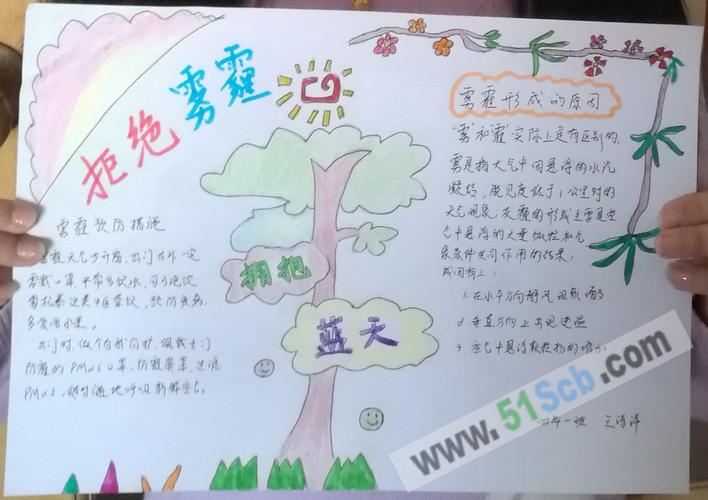 拒绝雾霾
雾霾预防措施
雾霾天气少开窗,出门在外一定
要戴口罩,平常多饮水,可多吃饮
多食用水果。
出门时,做个自我防护,佩戴专门
防霾的PM2.5口罩,防霾鼻罩,过滤
PM2.5,顺畅通地呼吸新鲜空气。
拥抱
蓝天
雾霾形成的原因
"雾"和"霾"实际上是有区别的,
雾是指大气中因悬浮的水汽
凝结,能见度低于1公里时的
天气现象;灰霾的形成主要是空
气中悬浮的大量微粒和气
象条件共同作用的结果,
成因有三:
1.在水平方向静风现象增多
2.垂直方向上出现逆温
3.空气中悬浮颗粒物的增加
四年一班
www.51Scb.com